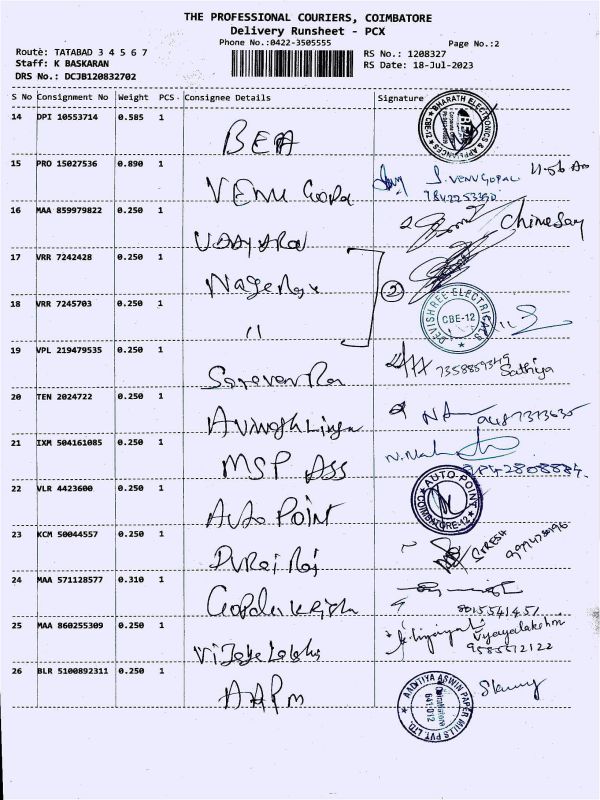 THE PROFESSIONAL COURIERS, COIMBATORE
Delivery Runsheet - PCX
Phone No.:0422-3505555
Page No.:2
Route: TATABAD 3 4 5 6 7
Staff: K BASKARAN
DRS No.: DCJB120832702
RS No.: 1208327
RS Date: 18-Jul-2023
S No Consignment No Weight PCS Consignee Details Signature
14 DPI 10553714 0.585 1
BEA
BHARATH ELECTRONICS & APPLIANCES CBE-12
15 PRO 15027536 0.890 1
VENU Gopal
S. VENUGOPAL
16 MAA 859979822 0.250 1
17 VRR 7242428 0.250 1
2
18 VRR 7245703 0.250 1
11
DEVISHREE ELECTRICALS CBE-12
19 VPL 219479535 0.250 1
7358859349
Sathiya
20 TEN 2024722 0.250 1
21 IXM 504161085 0.250 1
MSP ASS
22 VLR 4423600 0.250 1
Auto Point
AUTO-POINT COIMBATORE-12
23 KCM 50044557 0.250 1
Durai Raj
SURESH
24 MAA 571128577 0.310 1
8015541451
25 MAA 860255309 0.250 1
Vijayalakshmi
9585512122
26 BLR 5100892311 0.250 1
AAPM
AADITIYA ASWIN PAPER MILLS PVT. LTD. Coimbatore 641 012